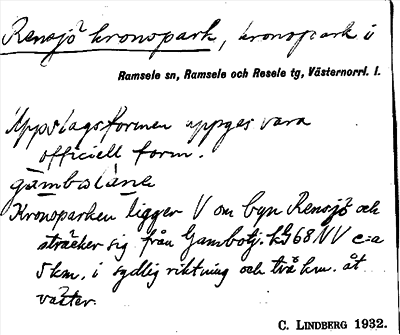 Rensjö kronopark, kronopark i
Ramsele sn, Ramsele och Resele tg, Västernorrl. l.
Uppslagsformen uppges vara
officiell form.
Kronoparken ligger V om byn Rensjö och
sträcker sig från Gambotj. kg 68 NV c:a
5 km. i sydlig riktning och två km. åt
väster.
C. LINDBERG 1932.